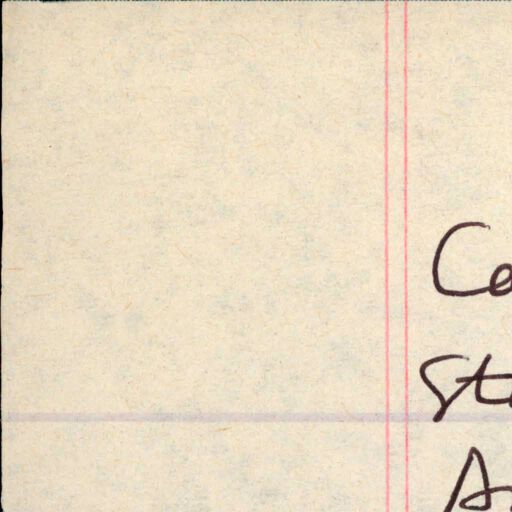 Ce
St
A